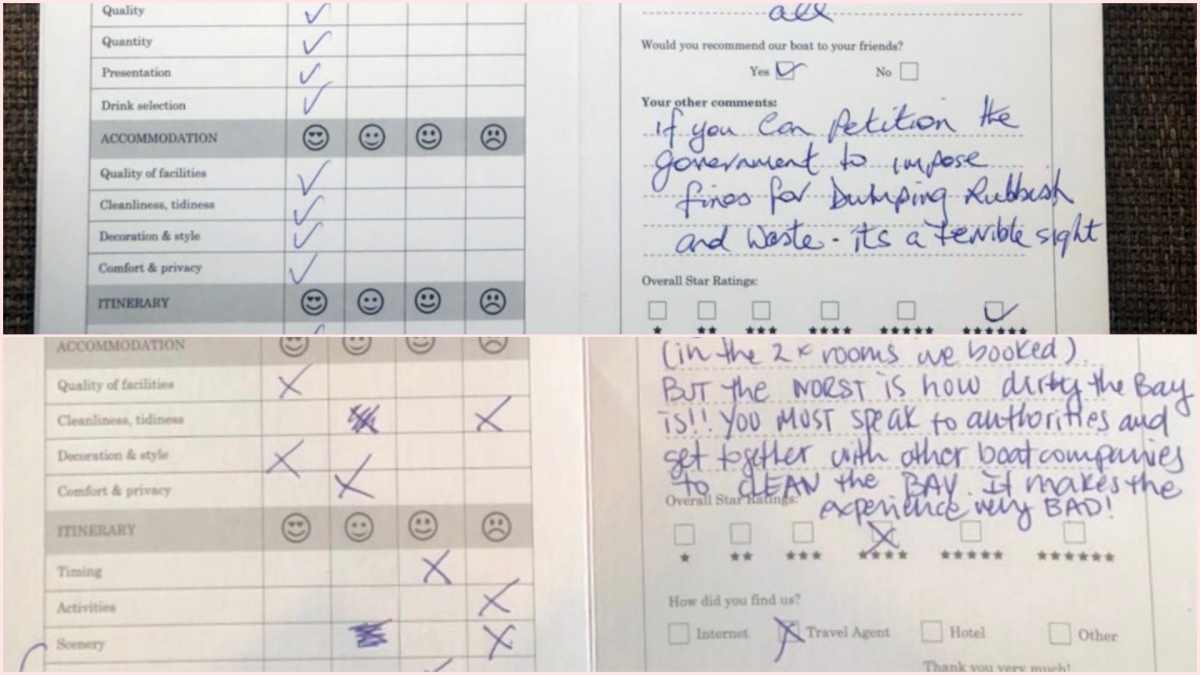 Quality
Quantity
Presentation
Drink selection
ACCOMMODATION
Quality of facilities
Cleanliness, tidiness
Decoration & style
Comfort & privacy
ITINERARY
all
Would you recommend our boat to your friends?
Yes No
Your other comments:
If you can petition the
government to impose
fines for Dumping Rubbish
and waste - its a terrible sight
Overall Star Ratings:
★ ★★ ★★★ ★★★★ ★★★★★ ★★★★★★
ACCOMMODATION
Quality of facilities
Cleanliness, tidiness
Decoration & style
Comfort & privacy
ITINERARY
Timing
Activities
Scenery
(in the 2x rooms we booked).
BUT the WORST is how dirty the Bay
is!! YOU MUST SPEAK to authorities and
get together with other boat companies
to CLEAN the BAY. It makes the
Overall Star Ratings:
experience very BAD!
★ ★★ ★★★ ★★★★ ★★★★★ ★★★★★★
How did you find us?
Internet Travel Agent Hotel Other
Thank you very much!